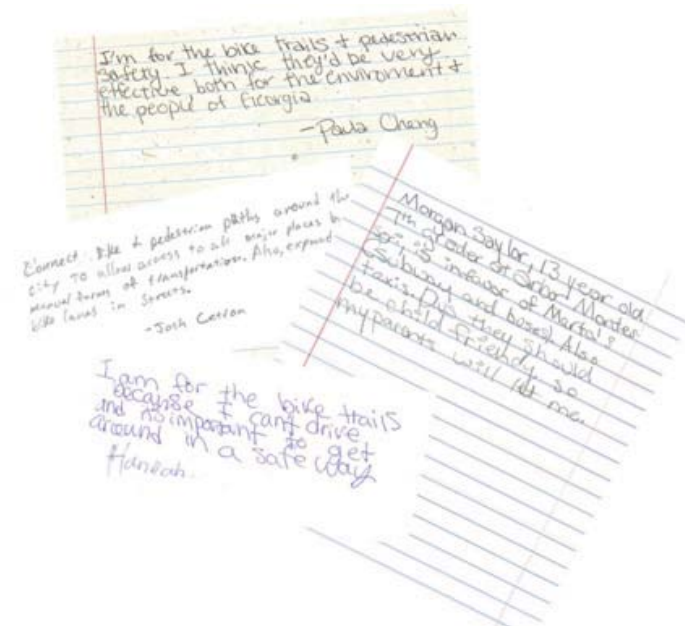 I'm for the bike trails + pedestrian
safety. I think they'd be very
effective both for the enviroment +
the people of Georgia
-Paula Cheng
Connect bike & pedestrian paths around the
city to allow access to all major places by
manual forms of transportation. Also, expand
bike lanes in streets.
-Josh Cetron
Morgan Saylor, 13 year old
7th grader at Arbor Montes
sori, is in favor of Marta's
(subway and buses). Also
taxis. But they should
be child friendly, so
my parents will let me.
I am for the bike trails
because I can't drive
and its important to get
around in a safe way
Hannah.